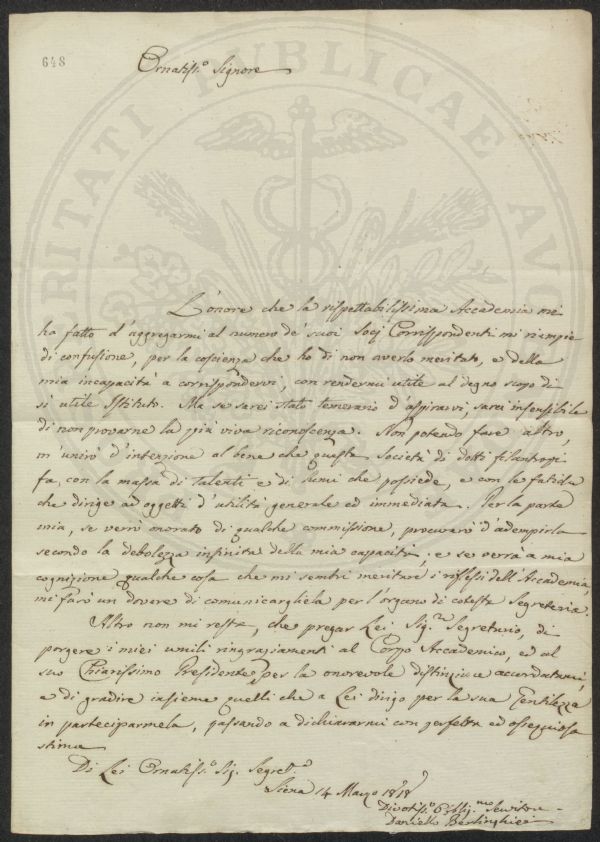 648
Ornatiss.o Signore
L'onore che la rispettabilissima Accademia mi
ha fatto d'aggregarmi al numero de' suoi Socj Corrispondenti mi riempie
di confusione, per la coscienza che ho di non averlo meritato, e della
mia incapacità a corrispondervi, con rendermi utile al degno scopo di
sì utile Istituto. Ma se sarei stato temerario d'aspirarvi, sarei insensibile
di non provarne la più viva riconoscenza. Non potendo fare altro,
m'unirò d'intenzione al bene che questa Società di dotti filantropi
fa, con la massa di talenti e di lumi che possiede, e con le fatiche
che dirige ad oggetti d'utilità generale ed immediata. Per la parte
mia, se verrò onorato di qualche commissione, procurarò d'adempirla
secondo la debolezza infinita della mia capacità; e se verrà a mia
cognizione qualche cosa che mi sembri meritare i riflessi dell'Accademia,
mi farò un dovere di comunicargliela per l'organo di cotesta Segreteria.
Altro non mi resta, che pregar Lei Sig.re Segretario, di
porgere i miei umili ringraziamenti al Corpo Accademico, ed al
suo Chiarissimo Presidente per la onorevole distinzione accordatami,
e di gradire insieme quelli che a Lei dirigo per la sua Gentilezza
in parteciparmela, passando a dichiararmi con perfetta ed ossequiosa
stima
Di Lei Ornatiss.o Sig. Segret.o
Siena 14 Marzo 1818
Divotiss.o Obblig.mo Servitore
Daniello Berlinghieri
RITATI PUBLICAE AUG